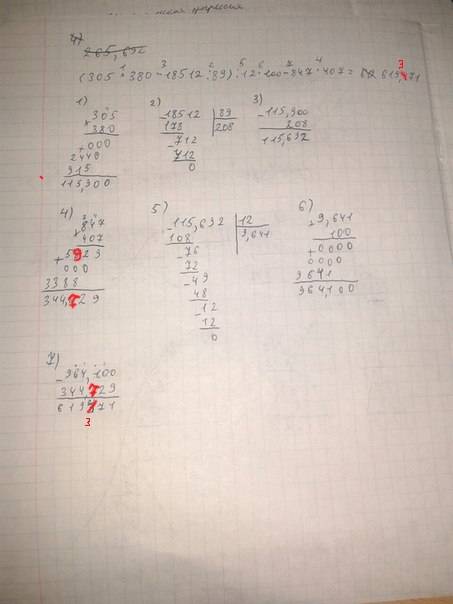 прогрессия
265,692
(305 · 380 - 18512 : 89) : 12 · 100 - 847 · 407 = 619,471
1 3 2 5 6 7 4
3
1) 2) 3)
305
380
000
2440
915
115,900
18512 89
178 208
712
712
0
115,900
208
115,692
4) 5) 6)
847
407
5929
000
3388
344,729
115,692 12
108 9,641
76
72
49
48
12
12
0
9,641
100
0000
0000
9641
964,100
7)
964,100
344,729
619 71
3